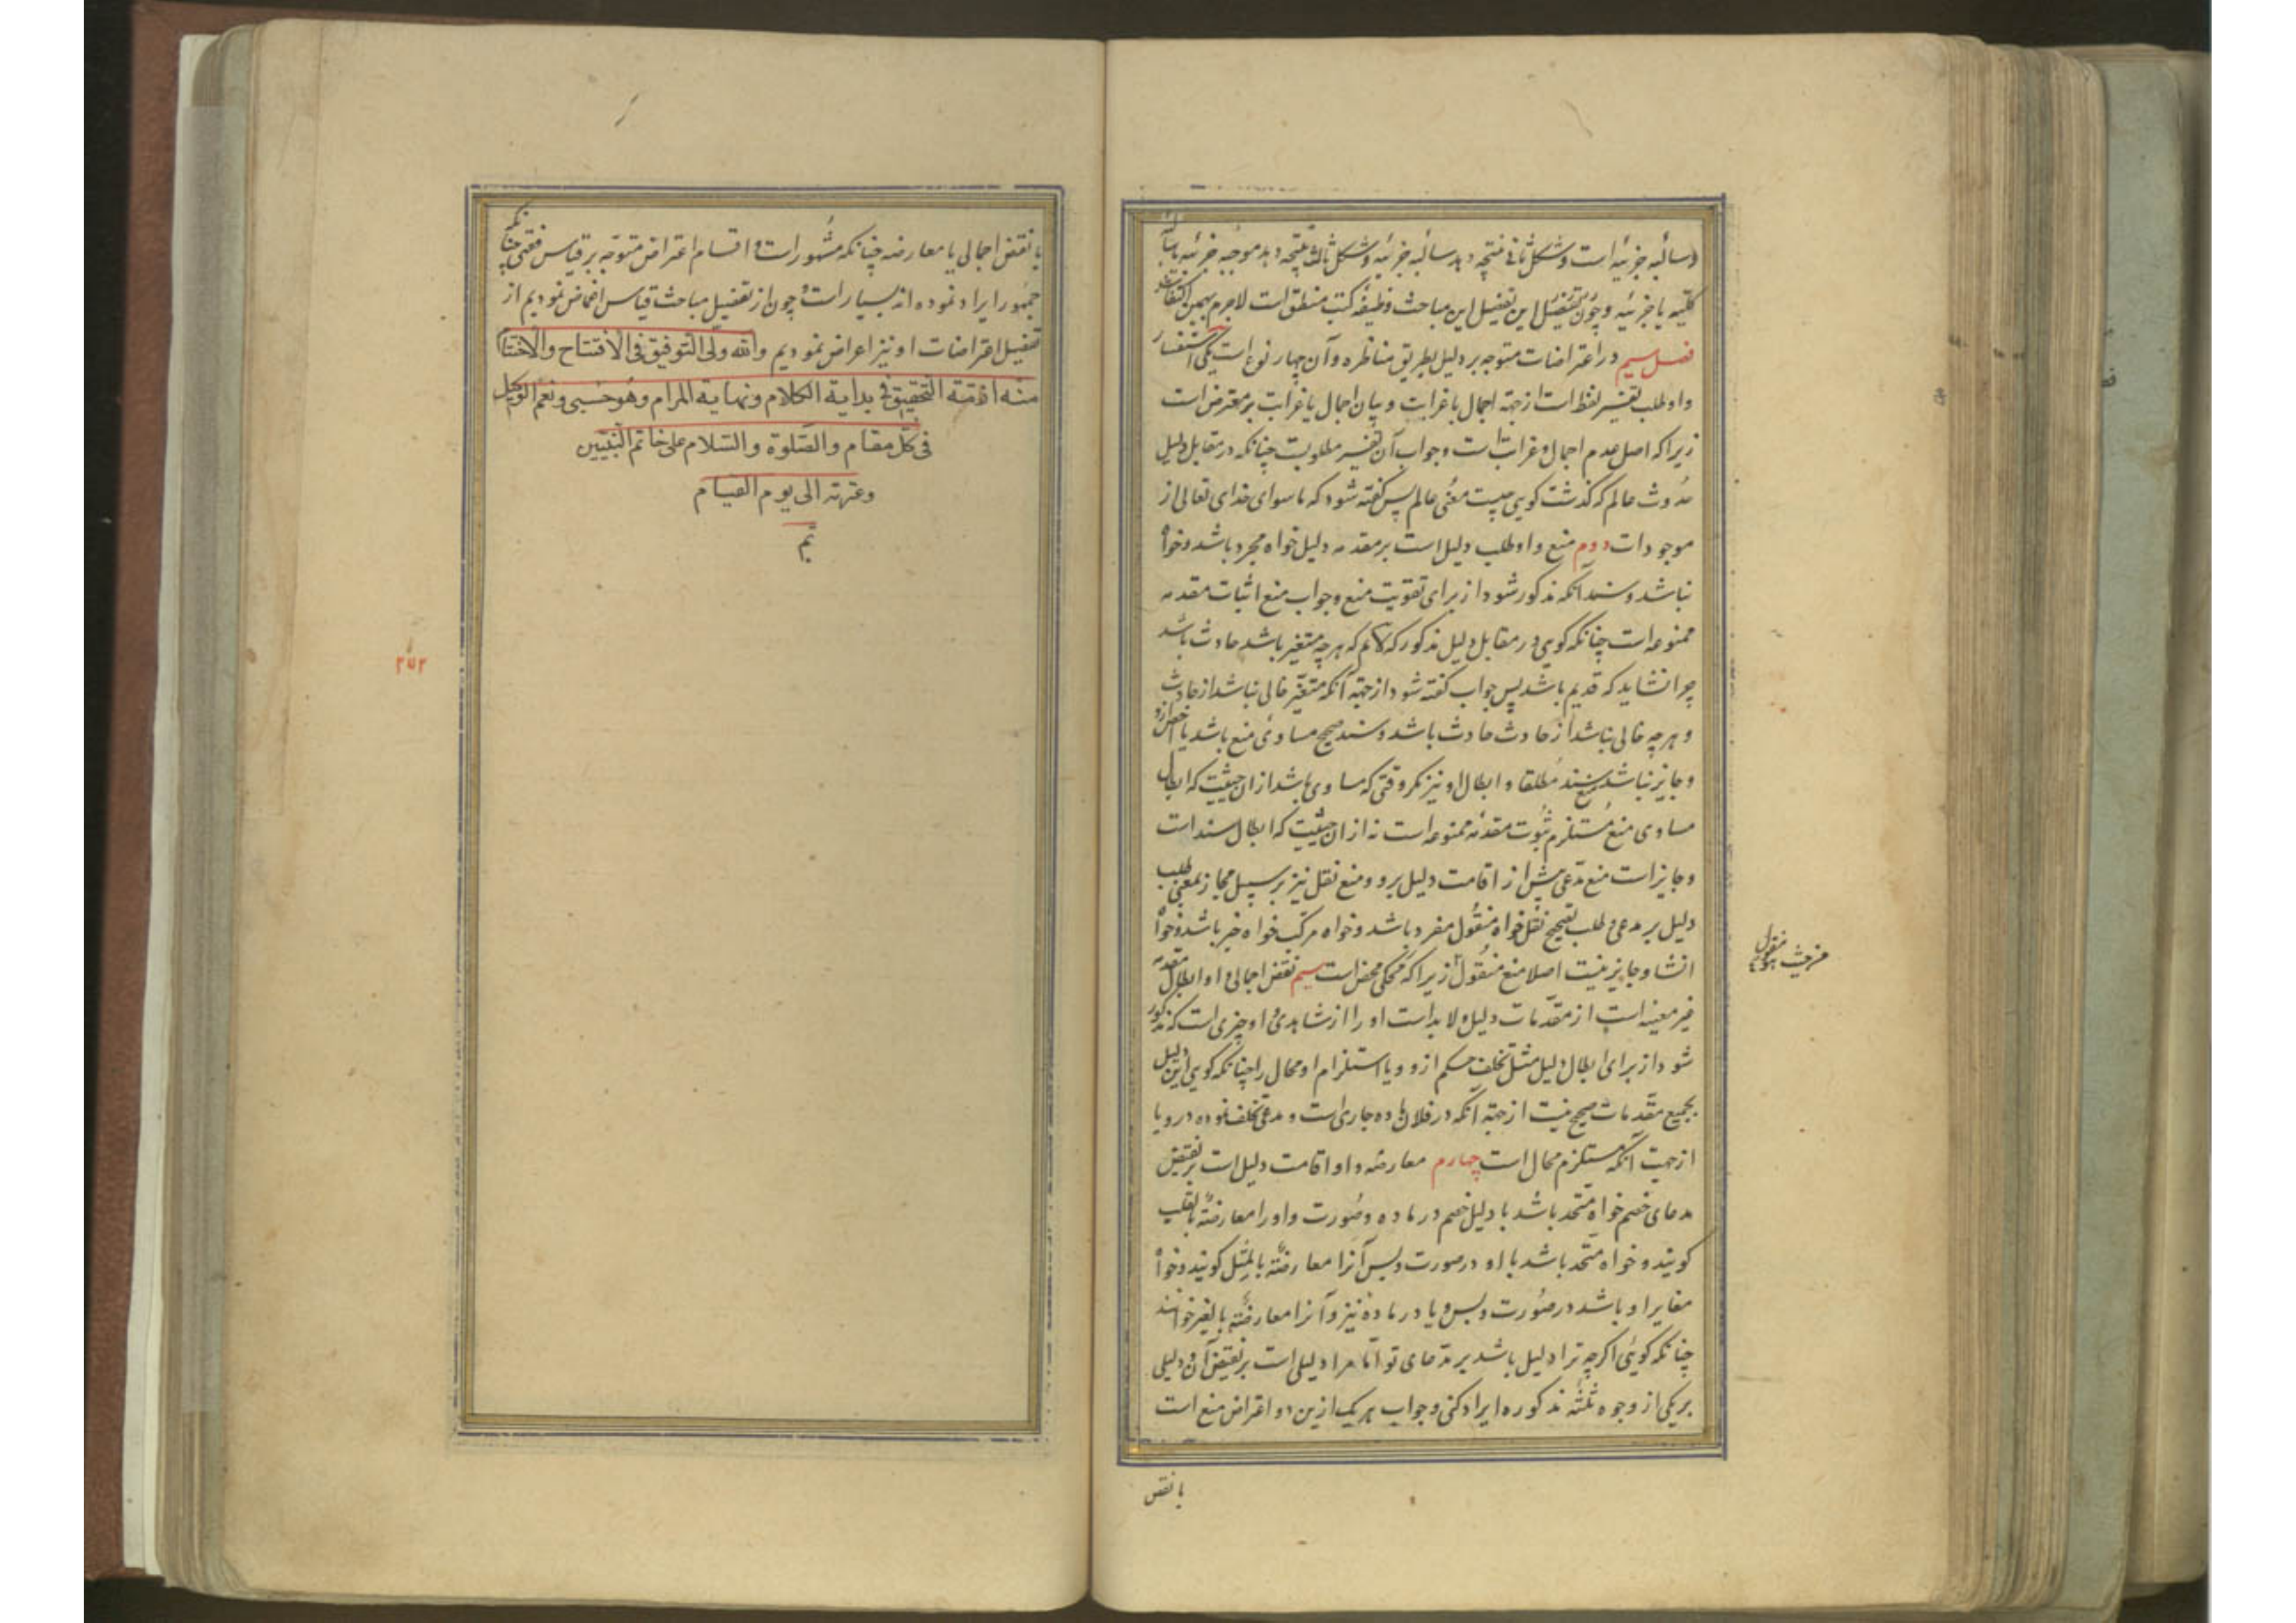 سالبه جزئیه است و شکل ثانی نتیجه دهد سالبه جزئیه و شکل ثالث نتیجه دهد موجبه جزئیه یا سالبه
کلیه یا جزئیه و چون تفصیل این تفصیل این مباحث وظیفه کتب منطق است لاجرم بهمین اکتفا
فصل سیم در اعتراضات متوجه بر دلیل بطریق مناظره و آن چهار نوع است یکی استفسار
و او طلب تفسیر لفظ است از جهة اجمال یا غرابت و بیان اجمال یا غرابت بر معترض است
زیرا که اصل عدم اجمال و غرابت است و جواب آن تفسیر مطلوبست چنانکه در مقابل دلیل
حدوث عالم که گذشت کویی چیست معنی عالم پس گفته شود که ماسوای خدای تعالی از
موجودات دوم منع و او طلب دلیل است بر مقدمه دلیل خواه مجرد باشد و خواه
نباشد و سند آنکه مذکور شود از برای تقویت منع و جواب منع اثبات مقدمه
ممنوعه است چنانکه کویی در مقابل دلیل مذکور که لانم که هر چه متغیر باشد حادث باشد
چرا نشاید که قدیم باشد پس جواب گفته شود از جهة آنکه متغیر خالی نباشد از حادث
و هر چه خالی نباشد از حادث حادث باشد و سند صحیح مساوی منع باشد یا اخص ازو
و جایز نباشد منع سند مطلقا و ابطال او نیز مکر وقتی که مساوی باشد از ان حیثیت که ابطال
مساوی منع مستلزم ثبوت مقدمه ممنوعه است نه از ان حیثیت که ابطال سند است
و جایز است منع مدعی پیش از اقامت دلیل برو و منع نقل نیز بر سبیل مجاز بمعنی طلب
دلیل بر مدعی و طلب تصحیح نقل خواه منقول مفرد باشد و خواه مرکب خواه خبر باشد و خواه
انشا و جایز نیست اصلا منع منقول زیرا که محکی محض است سیم نقض اجمالی و او ابطال مقدمه
غیر معینه است از مقدمات دلیل و لابد است او را از شاهدی و او چیزی است که مذکور
شود از برای ابطال دلیل مثل تخلف حکم ازو و یا استلزام او محال را چنانکه کویی این دلیل
بجمیع مقدمات صحیح نیست از جهة آنکه در فلان ماده جاری است و مدعی تخلف نموده درو یا
از جهت آنکه مستلزم محال است چهارم معارضه و او اقامت دلیل است بر نقیض
مدعای خصم خواه متحد باشد با دلیل خصم در ماده و صورت و او را معارضه بالقلب
کویند و خواه متحد باشد با او در صورت و بس آنرا معارضه بالمثل کویند و خواه
مغایر او باشد در صورت و بس و یا در ماده نیز و آنرا معارضه بالغیر خوانند
چنانکه کوئی اکرچه ترا دلیل باشد بر مدعای تو اما مرا دلیلی است بر نقیض آن و دلیلی
بر یکی از وجوه ثلثه مذکوره ایراد کنی و جواب هر یک ازین دو اعتراض منع است
یا نقض
منقول
من حیث هو
یا نقض اجمالی یا معارضه چنانکه مشهور است و اقسام اعتراض متوجه بر قیاس فقهی چنانکه
جمهور ایراد نموده اند بسیار است و چون از تفصیل مباحث قیاس اغماض نمودیم از
تفصیل اعتراضات او نیز اعراض نمودیم والله ولی التوفیق فی الافتتاح والاختتام
منه ازمة التحقیق فی بدایة الکلام ونهایة المرام وهو حسبی ونعم الوکیل
فی کل مقام والصلوة والسلام علی خاتم النبیین
وعترته الی یوم القیام
تم
۲۵۲